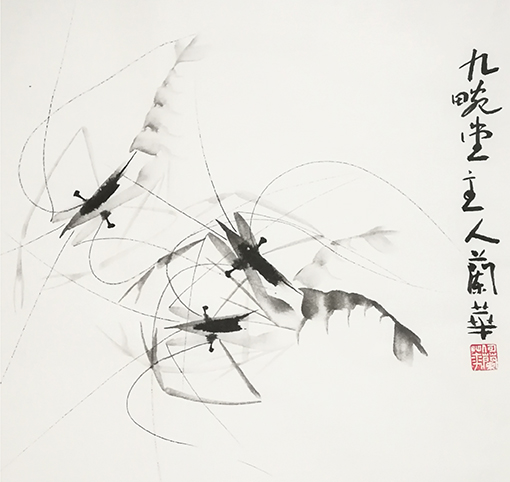 九畹堂主人蘭華